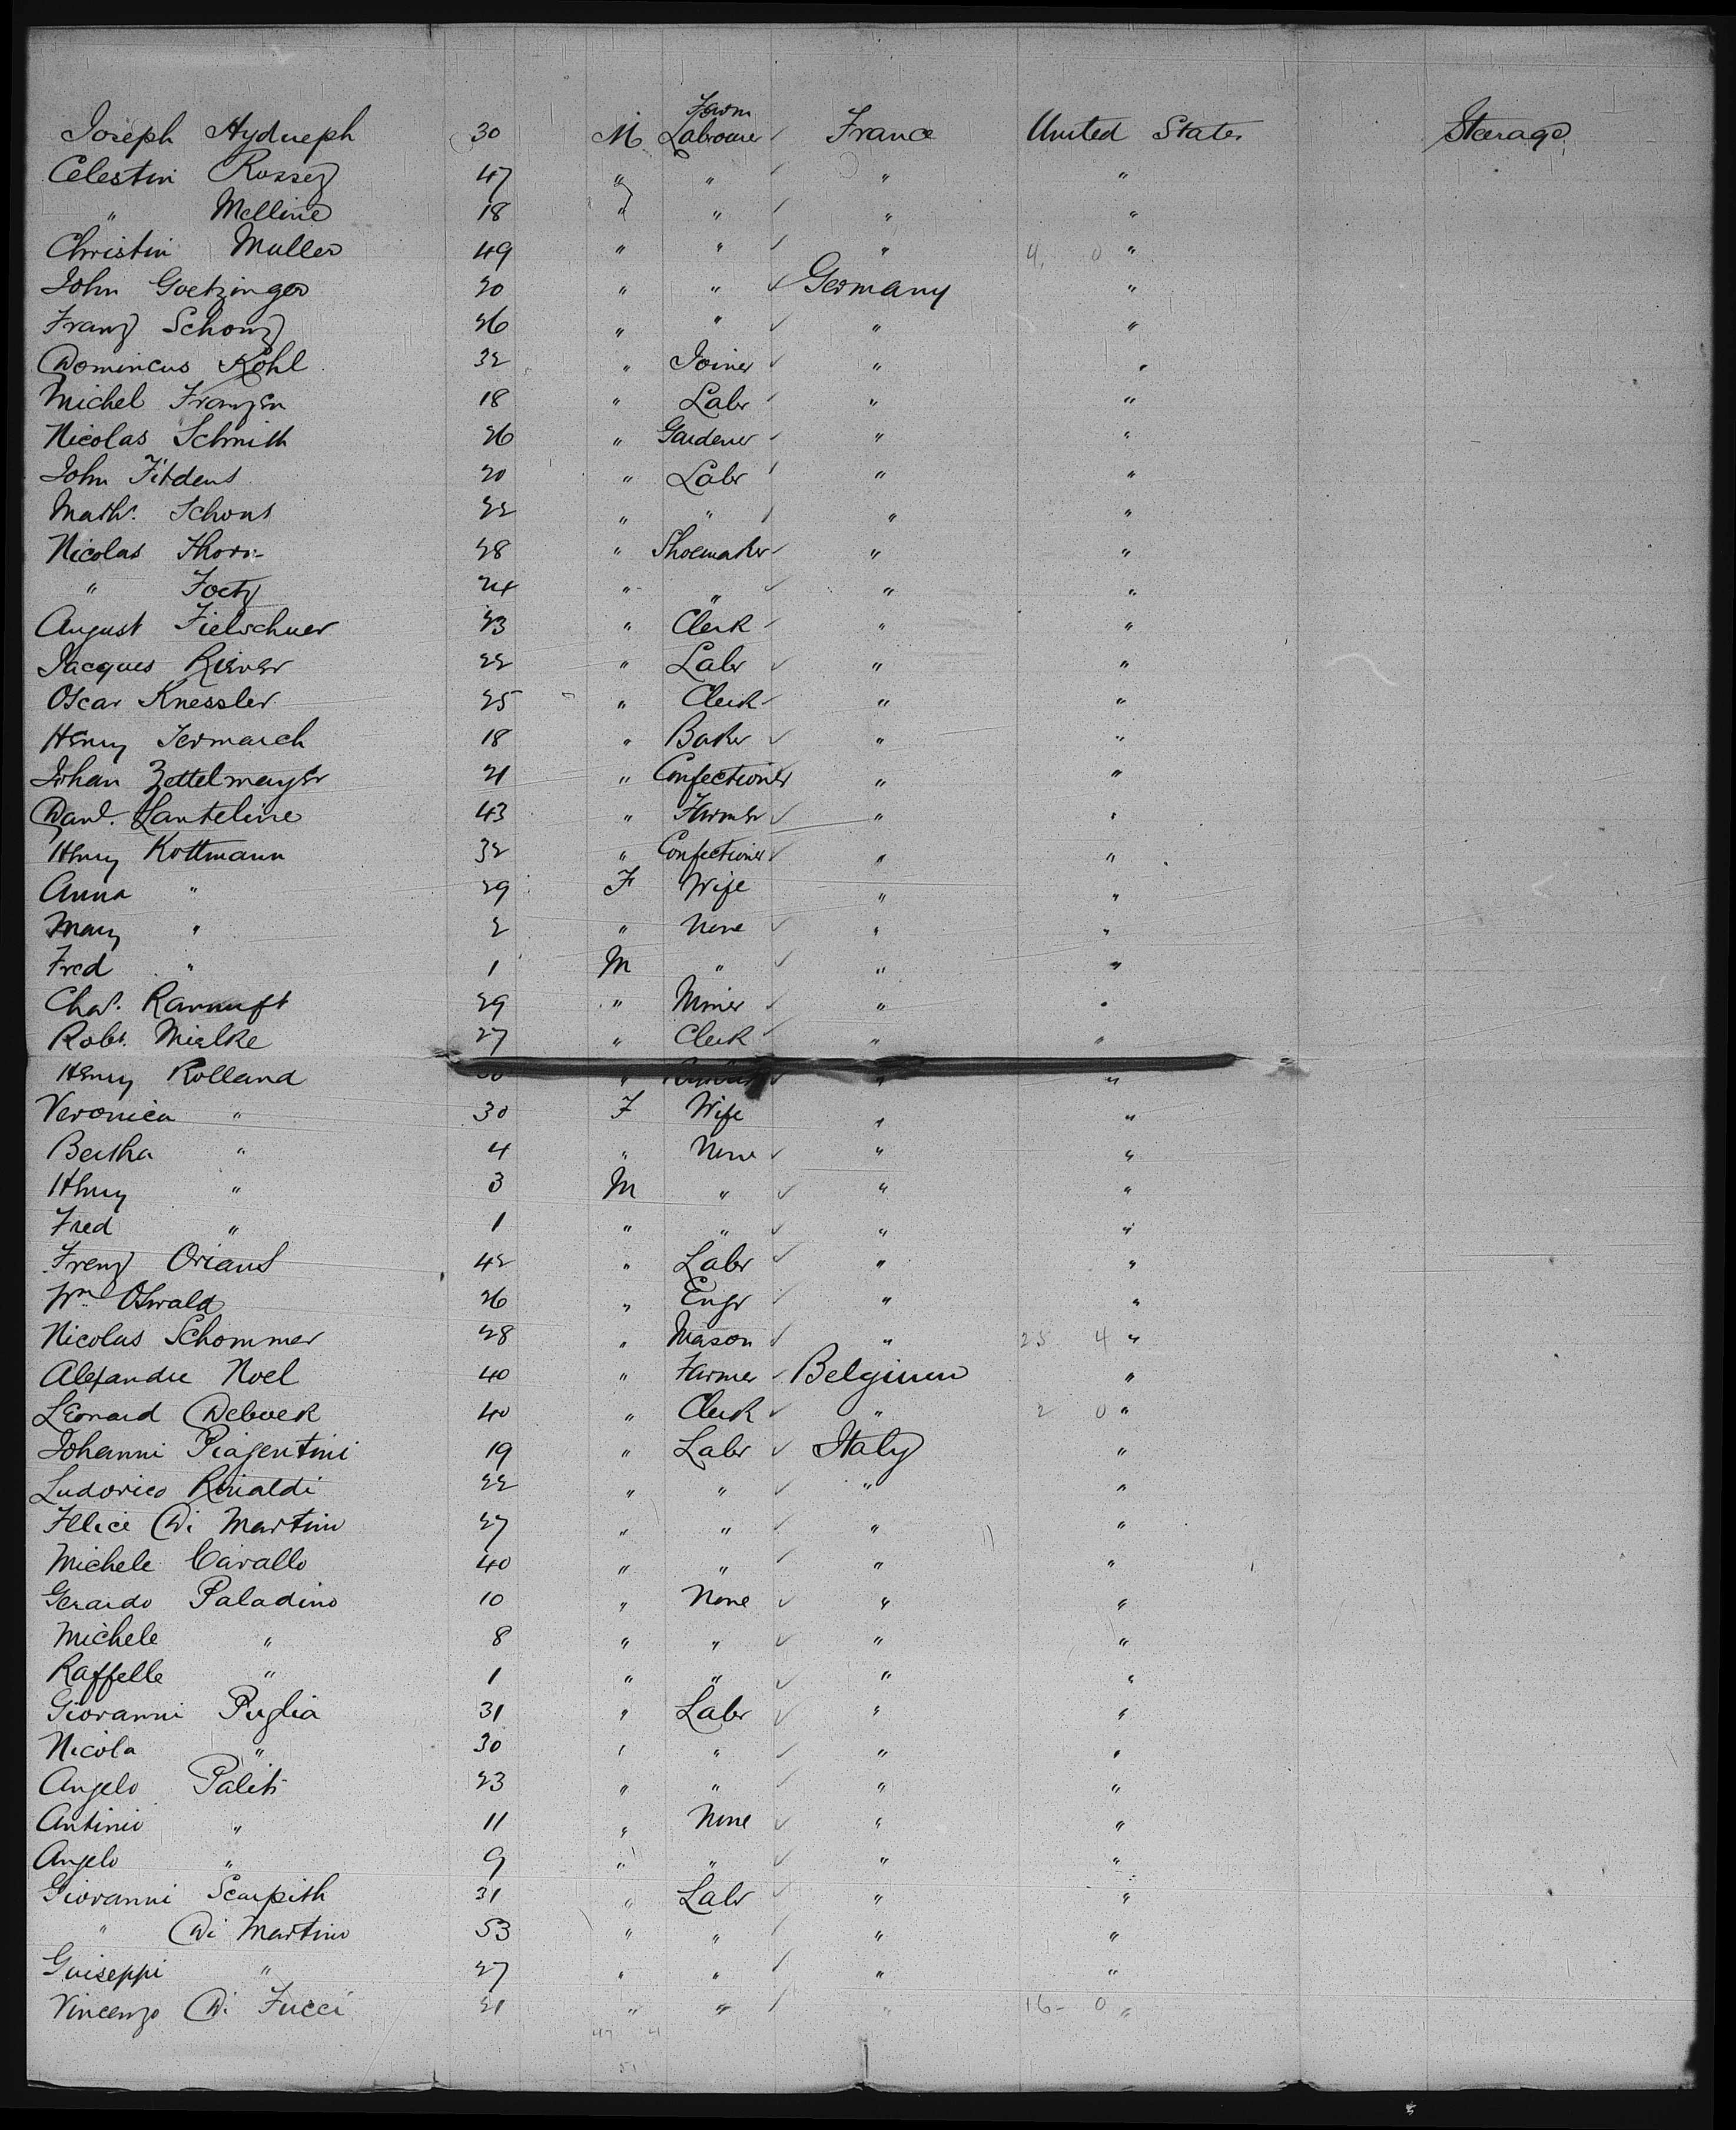 Joseph Hydueph 30 M Farm Labourer ✓ France United States Steerage
Celestin Rossez 47 " " ✓ " "
" Melline 18 " " ✓ " "
Christin Muller 49 " " ✓ " 4, 0 "
John Goetzinger 20 " " ✓ Germany "
Franz Schonz 26 " " ✓ " "
Dominicus Kohl 32 " Joiner ✓ " "
Michel Franzen 18 " Labr ✓ " "
Nicolas Schmith 26 " Gardener ✓ " "
John Fitdens 20 " Labr ✓ " "
Maths. Schons 22 " " ✓ " "
Nicolas Thorn 28 " Shoemaker ✓ " "
" Foetz 24 " " ✓ " "
August Fielschuer 23 " Clerk ✓ " "
Jacques Riever 22 " Labr ✓ " "
Oscar Knessler 25 " Clerk ✓ " "
Henry Termarch 18 " Baker ✓ " "
Johan Zettelmayer 21 " Confectioner " "
Danl. Lanteline 43 " Farmer ✓ " "
Henry Kottmann 32 " Confectioner ✓ " "
Anna " 29 F Wife " "
Mary " 2 " None ✓ " "
Fred " 1 M " ✓ " "
Chas. Rannuft 29 " Miner ✓ " "
Robt. Mielke 27 " Clerk ✓ " "
Henry Rolland 30 " ✓ " "
Veronica " 30 F Wife " "
Bertha " 4 " None ✓ " "
Henry " 3 M " ✓ " "
Fred " 1 " " ✓ " "
Frenz Orians 42 " Labr ✓ " "
Wm Oswald 26 " Engr ✓ " "
Nicolus Schommer 28 " Mason ✓ " 25 4 "
Alexandre Noel 40 " Farmer ✓ Belgium "
Leonard Deboek 40 " Clerk ✓ " 2 0 "
Johanni Piagentini 19 " Labr ✓ Italy "
Ludovico Rinaldi 22 " " ✓ " "
Felice Di Martino 27 " " ✓ " "
Michele Cavallo 40 " " ✓ " "
Gerardo Paladino 10 " None ✓ " "
Michele " 8 " " ✓ " "
Raffelle " 1 " " ✓ " "
Giovanni Puglia 31 " Labr ✓ " "
Nicola " 30 " " ✓ " "
Angelo Paliti 23 " " ✓ " "
Antinio " 11 " None ✓ " "
Angelo " 9 " " ✓ " "
Giovanni Scarpith 31 " Labr ✓ " "
" Di Martino 53 " " ✓ " "
Guiseppi " 27 " " ✓ " "
Vincenzo Di Fucci 21 " " ✓ " 16- 0 "
47 4
51